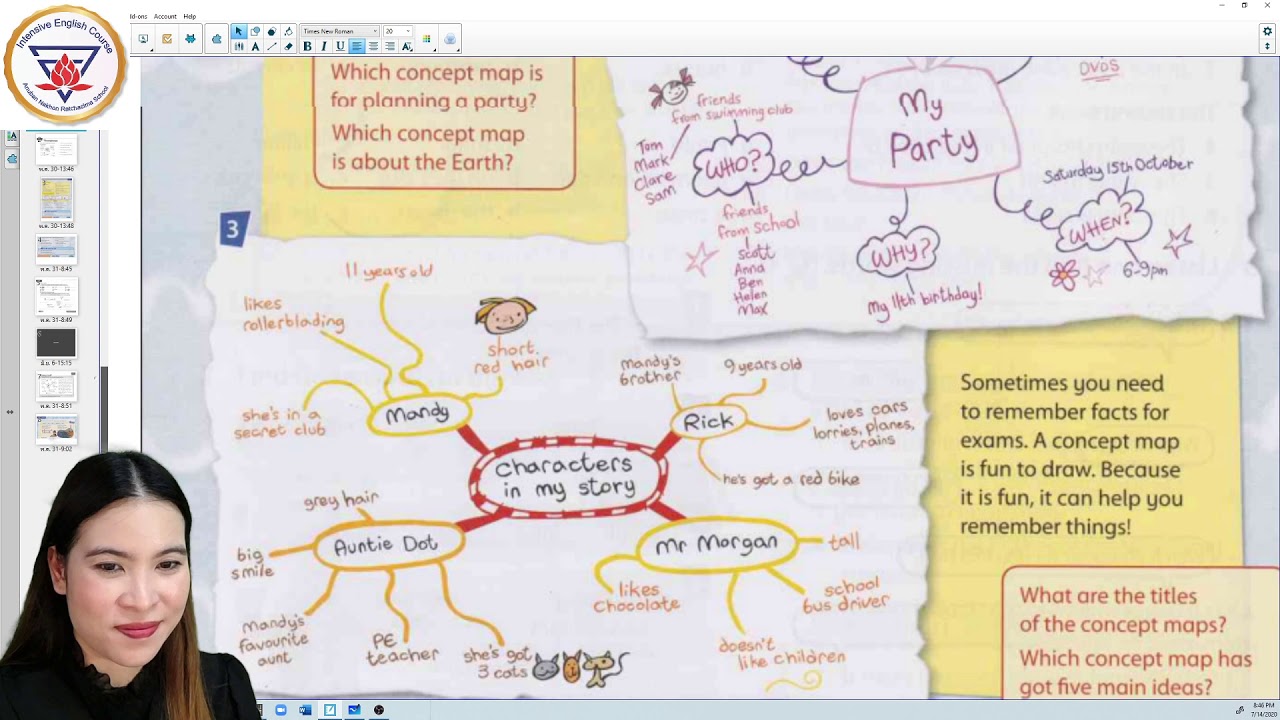 Intensive English Course
Anuban Nakhon Ratchasima School
dd-ons Account Help
Times New Roman
20
B I U
พ.ค. 30-13:46
พ.ค. 30-13:48
พ.ค. 31-8:45
พ.ค. 31-8:49
มิ.ย. 6-15:15
พ.ค. 31-8:51
พ.ค. 31-9:02
Which concept map is
for planning a party?
Which concept map
is about the Earth?
DVDs
My
Party
friends
from swimming club
Tom
Mark
Clare
Sam
WHO?
friends
from school
Scott
Anna
Ben
Helen
Max
WHY?
My 11th birthday!
Saturday 15th October
WHEN?
6-9pm
3
11 years old
likes
rollerblading
short
red hair
she's in a
secret club
Mandy
mandy's
brother
9 years old
Rick
loves cars
lorries, planes,
trains
he's got a red bike
characters
in my story
grey hair
Auntie Dot
big
smile
mandy's
favourite
aunt
PE
teacher
she's got
3 cats
Mr Morgan
tall
likes
chocolate
school
bus driver
doesn't
like children
Sometimes you need
to remember facts for
exams. A concept map
is fun to draw. Because
it is fun, it can help you
remember things!
What are the titles
of the concept maps?
Which concept map has
got five main ideas?
8:46 PM
7/14/2020